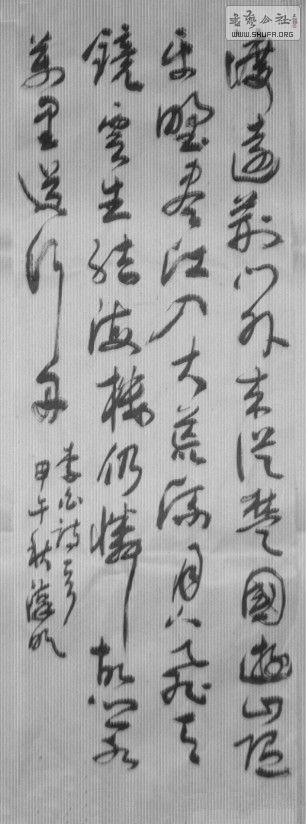 渡遠荊门外来從楚國遊山随
平野盡江入大荒流月下飛天
鏡雲生结海樓仍憐故鄉水
萬里送行舟
李白詩一首
甲午秋
书艺公社
WWW.SHUFA.ORG